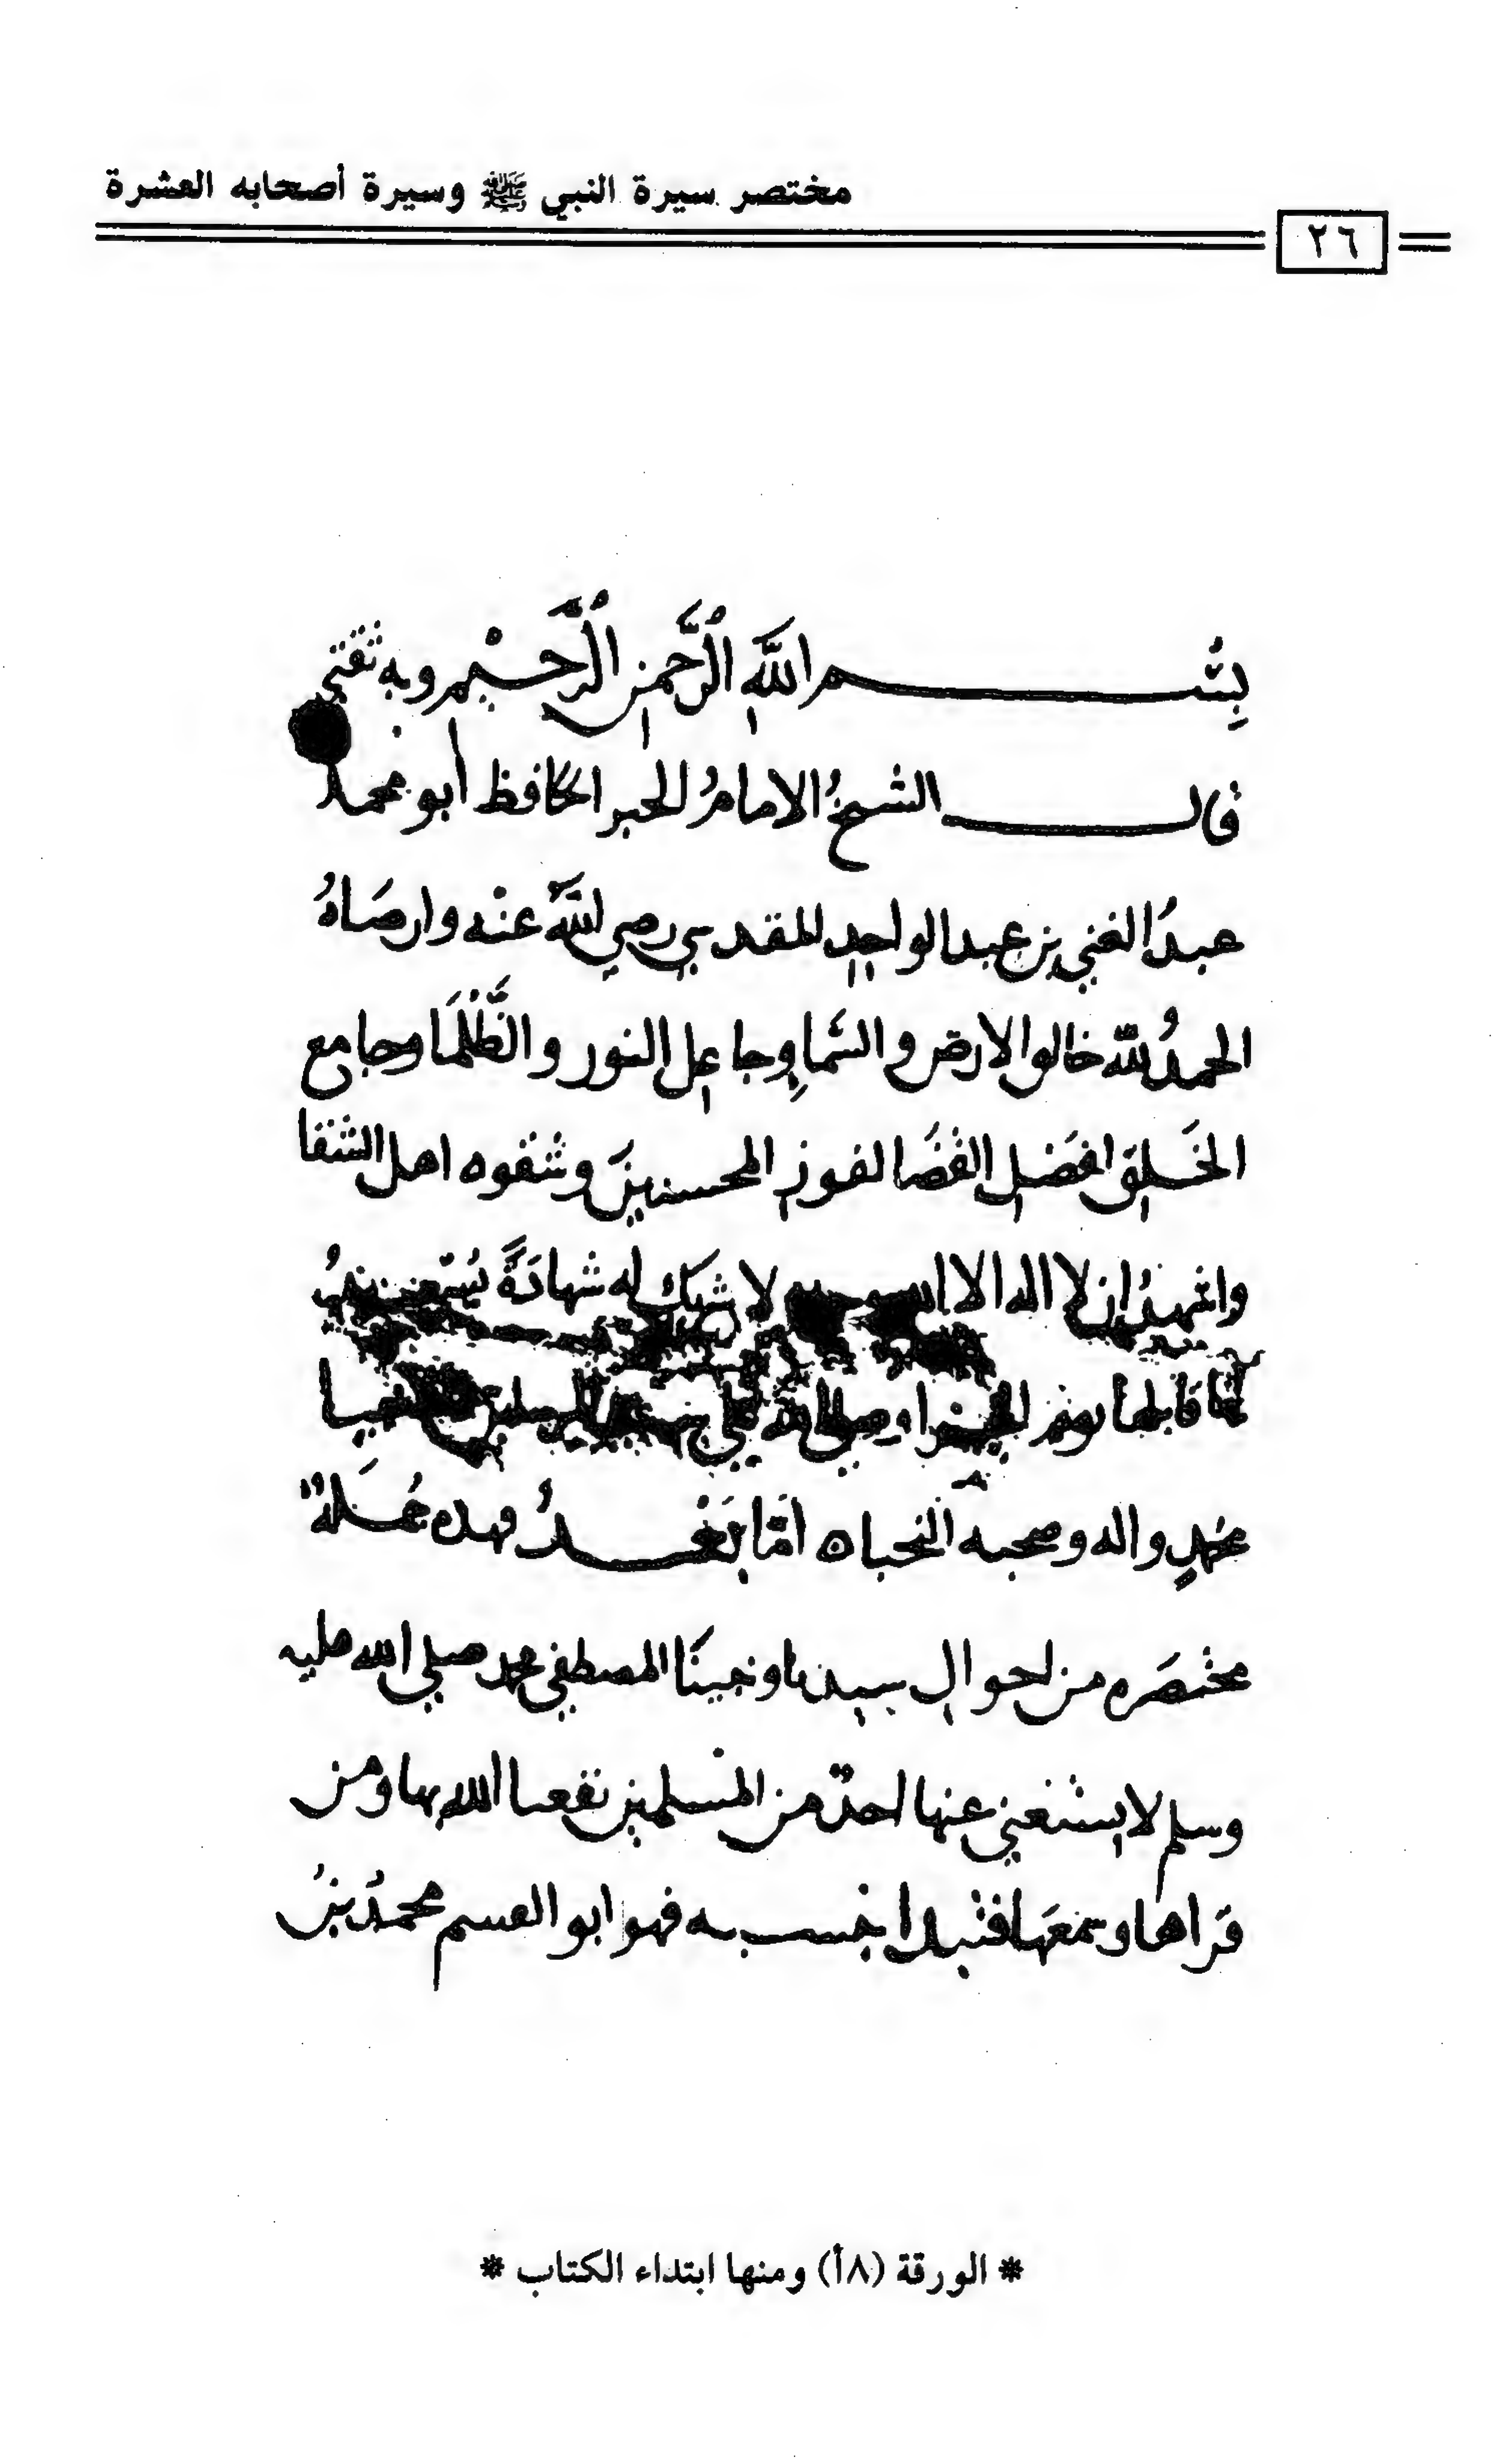 مختصر سيرة النبي ﷺ وسيرة أصحابه العشرة
٢٦
بِسْم اللهِ الرَّحمنِ الرَّحِيْمِ وبه ثقتي
قال الشيخُ الامامُ الحبر الحافظ أبو محمد
عبدُ الغني بن عبد الواحدِ المقدسي رضي اللهُ عنْه وارضَاهُ
الحمدُ لله خالق الارض والسَّماءِ وجاعل النور والظَّلْمَا وجامع
الخَلق لفَصْل القَضَا لفوز المحسنينَ وشقوه اهل الشقا
واشهدُ ان لا اله الا لا شريك له شهادَةً
قابلها يوم الجزاء وصلى الله على
محمدٍ واله وصحبه النجباه امَّا بَعْدُ فهذه جُملَةٌ
مختصَره من احوالِ سيدنا ونبينَا المصطفى محمد صلى الله عليه
وسلم لا يستغني عنها احدٌ من المسلمين نفعنا الله بها ومن
قراها وسمعَها فنبدا بنسبه فهو ابو القسم محمدُ بنُ
* الورقة (٨أ) ومنها ابتداء الكتاب *